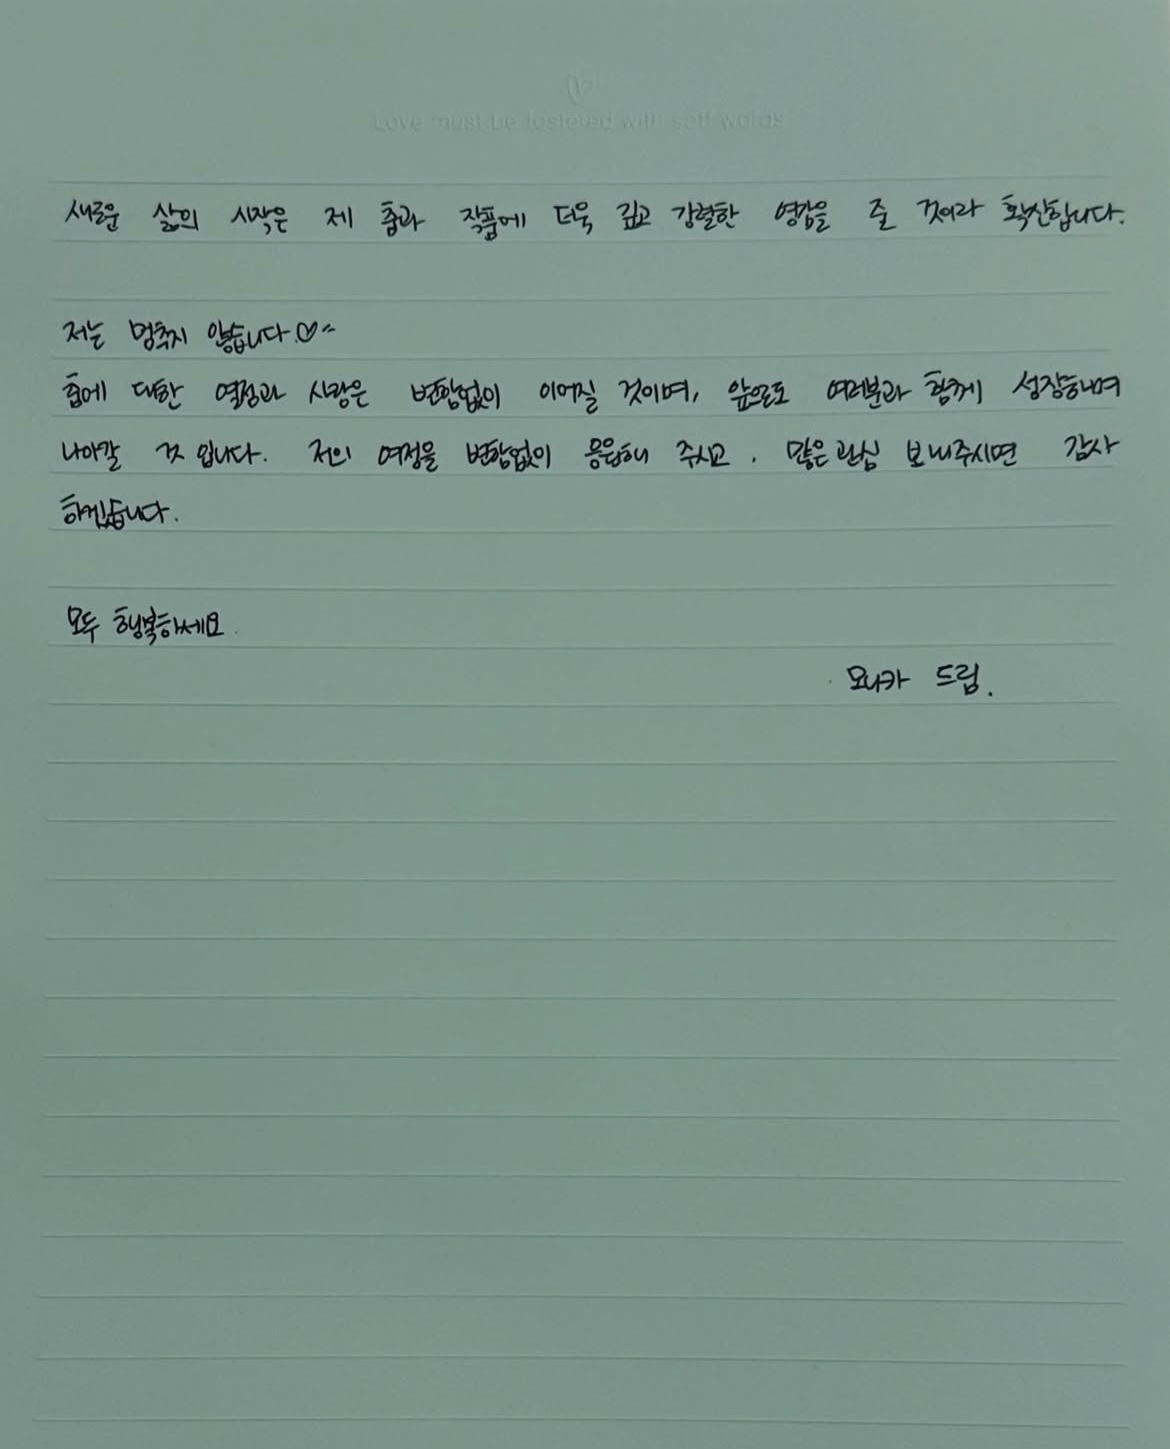 Love must be fostered with soft words
새로운 삶의 시작은 제 춤과 작품에 더욱 깊고 강렬한 영감을 줄 것이라 확신합니다.
저는 멈추지 않습니다.♡
춤에 대한 열정과 사랑은 변함없이 이어질 것이며, 앞으로도 여러분과 함께 성장하며
나아갈 것 입니다. 저의 여정을 변함없이 응원해 주시고, 많은 관심 보내주시면 감사
하겠습니다.
모두 행복하세요.
모니카 드림.